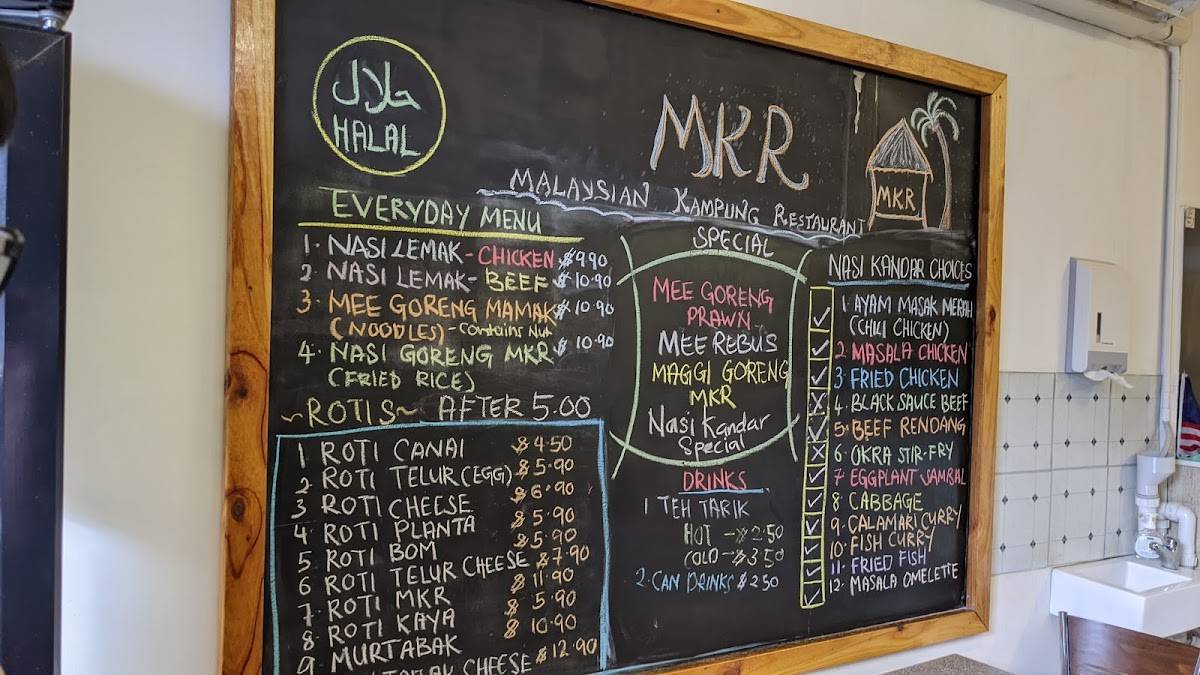 حلال
HALAL
MKR
MKR
MALAYSIAN KAMPUNG RESTAURANT
EVERYDAY MENU
1. NASI LEMAK - CHICKEN $9.90
2 NASI LEMAK - BEEF $10.90
3. MEE GORENG MAMAK $10.90
(NOODLES) - Contains Nut
4. NASI GORENG MKR $10.90
(FRIED RICE)
~ROTIS~ AFTER 5.00
1 ROTI CANAI $4.50
2 ROTI TELUR (EGG) $5.90
3 ROTI CHEESE $6.90
4 ROTI PLANTA $5.90
5 ROTI BOM $5.90
6 ROTI TELUR CHEESE $7.90
7 ROTI MKR $11.90
8 ROTI KAYA $5.90
9 MURTABAK $10.90
CHEESE $12.90
SPECIAL
MEE GORENG
PRAWN
MEE REBUS
MAGGI GORENG
MKR
Nasi Kandar
Special
DRINKS
1 TEH TARIK
HOT → $2.50
COLD → $3.50
2. CAN DRINKS $2.50
NASI KANDAR CHOICES
1. AYAM MASAK MERAH
(CHILI CHICKEN)
2. MASALA CHICKEN
3. FRIED CHICKEN
4. BLACK SAUCE BEEF
5. BEEF RENDANG
6. OKRA STIR-FRY
7 EGGPLANT SAMBAL
8. CABBAGE
9. CALAMARI CURRY
10. FISH CURRY
11. FRIED FISH
12. MASALA OMELETTE